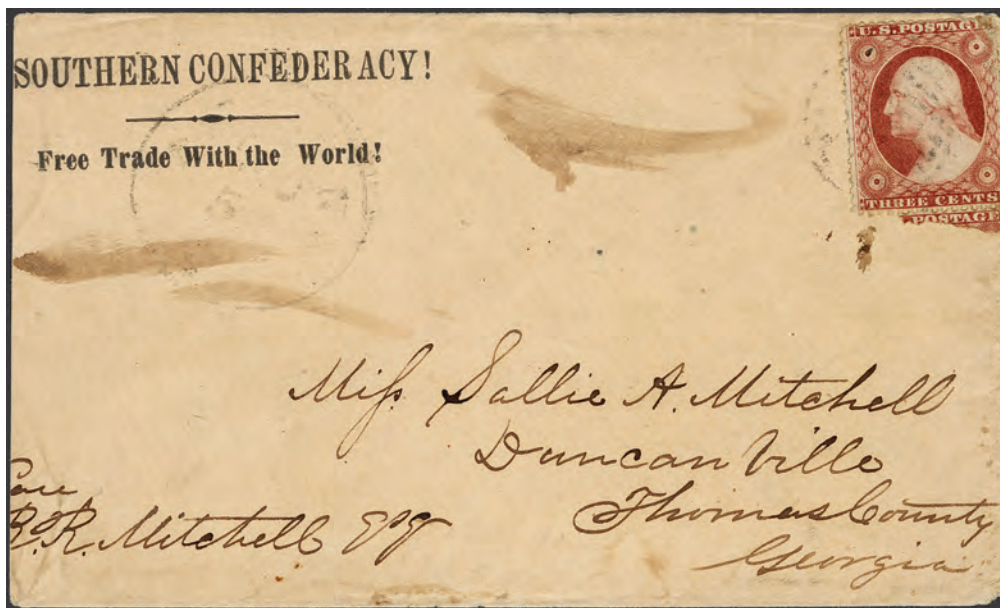 SOUTHERN CONFEDERACY!
Free Trade With the World!
U.S. POSTAGE
THREE CENTS
POSTAGE
Miss Sallie A. Mitchell
Duncanville
Thomas County
Georgia
Care
R. R. Mitchell Esq